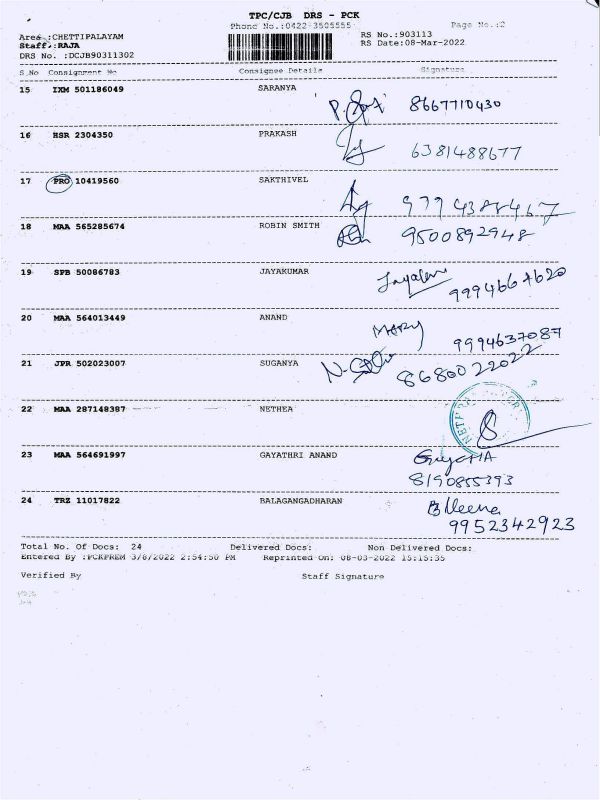 TPC/CJB DRS - PCK
Phone No.:0422 3505555 Page No.:2
Area :CHETTIPALAYAM RS No.:903113
Staff :RAJA RS Date:08-Mar-2022
DRS No. :DCJB90311302
S.No Consignment No Consignee Details Signature
15 IXM 501186049 SARANYA 8667710430
16 HSR 2304350 PRAKASH 6381488677
17 PRO 10419560 SAKTHIVEL
18 MAA 565285674 ROBIN SMITH 9500892948
19 SPB 50086783 JAYAKUMAR
20 MAA 564013449 ANAND MARY 9994637087
21 JPR 502023007 SUGANYA 8680022022
22 MAA 287148387 NETHEA
23 MAA 564691997 GAYATHRI ANAND 8190855393
24 TRZ 11017822 BALAGANGADHARAN B Meena 9952342923
Total No. Of Docs: 24 Delivered Docs: Non Delivered Docs:
Entered By :PCKPREM 3/8/2022 2:54:50 PM Reprinted On: 08-03-2022 15:15:35
Verified By Staff Signature